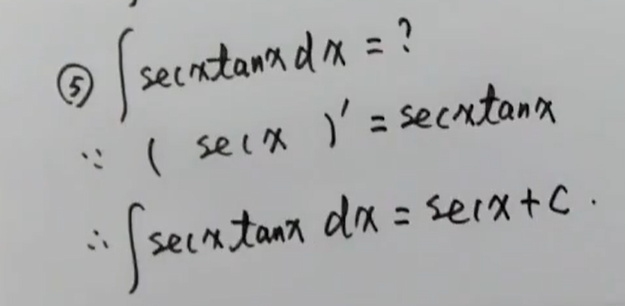 ⑤ ∫secxtanxdx=?
∵ (secx)′=secxtanx
∴ ∫secxtanx dx=secx+C.